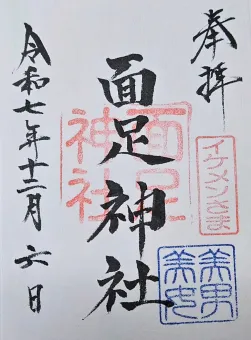 奉拝
イケメンさま
美男
美女
面足神社
面足
神社
令和七年十二月六日